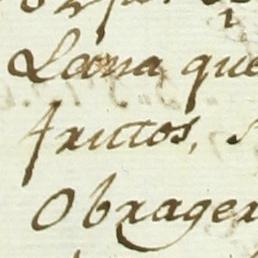 Lana que
frutos,
Obrager